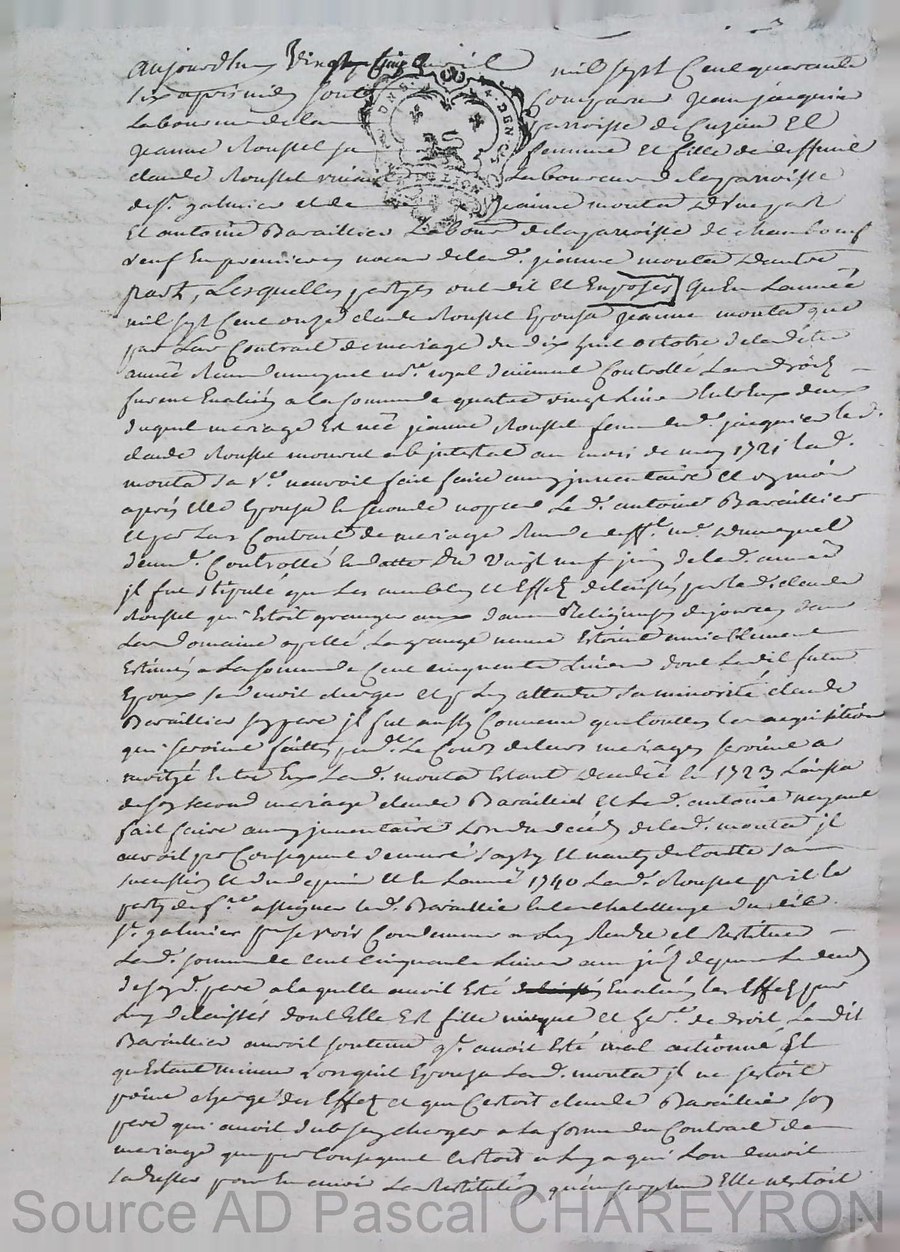 aujourdhuy Vingt Cinq avril mil sept Cent quarante
six apres midy sont Comparu Jean jacquier
Laboureur de la parroisse de Cuzieu Et
Jeanne Roussel sa femme Et fille de deffunt
claude Roussel vivant Laboureur de la parroisse
de st. galmier et de Jeanne monta D'une part
Et antoine Baraillier Labour de la parroisse de chambeuf
veuf En premieres noces de lad. jeanne monta D'autre
part, Lesquelles partyes ont dit et Exposés qu'En L'année
mil sept Cent onze claude Roussel Epousa Jeanne monta que
par Leur Contrait de mariage du dix huit octobre de lad.
année Dumeynet Controllé Leurs droits
furent Evalués a la somme de quatre vingt Livre
duquel mariage Est née jeanne Roussel femme dud. jacquier led.
claude Roussel mourut ab intestat au mois de may 1721 lad.
monta sa ve. n'auroit fait faire aucun inventaire et
après Elle Epousa En seconde nopces Led. antoine Baraillier
et par Leur Contrait de mariage
Controllé En datte Du Vingt neuf juin de lad. année
jl fut stipulé que Les meubles Et Effets délaissés par led. claude
Roussel qui Estoit granger aux dames Religieuses de jourcey dans
Leur Domaine appellé La grange neuve Estoint
Estimés a La somme de Cent cinquante Livres dont Ledit futur
Epoux se devoit charger et pr Luy attendu sa minorité claude
Baraillier son pere jl fut aussy Convenu que touttes les acquisitions
qui seroint faittes pendt. Le Cours de leurs mariages seroint a
moitié Entre Eux Lad. monta Estant Decedée En 1723 Laissa
de son second mariage claude Baraillier et Led. antoine n'ayant
fait faire aucun jnventaire Lors du décés de lad. monta jl
auroit par Consequent demeuré saysy Et nanty de toutte sa
succession Et En L'année 1740 Lad. Roussel prit le
party de faire assigner led. Baraillier En la chatellenie dud.
st. galmier pour se voir Condamner a Luy Rendre et Restituer
Lad. somme de Cent cinquante Livres depuis Le deced
de sond. pere a laquelle avoit Esté Evalués les Effets par
Luy délaissés dont Elle Est fille unique et her. de droit Ledit
Baraillier auroit soutenu q'l avoit Esté mal actionné Et
qu'Estant mineur Lorsquil Epousa Lad. monta jl ne s'estoit
point chargé des Effets et que C'estoit claude Baraillier son
pere qui auroit dub s'en charger a la forme du Contrait de
mariage que par Consequent C'estoit a Luy a qui Lon devoit
sadresser pour En avoir La Restitution qu'au surplus Elle n'estoit
Source AD Pascal CHAREYRON